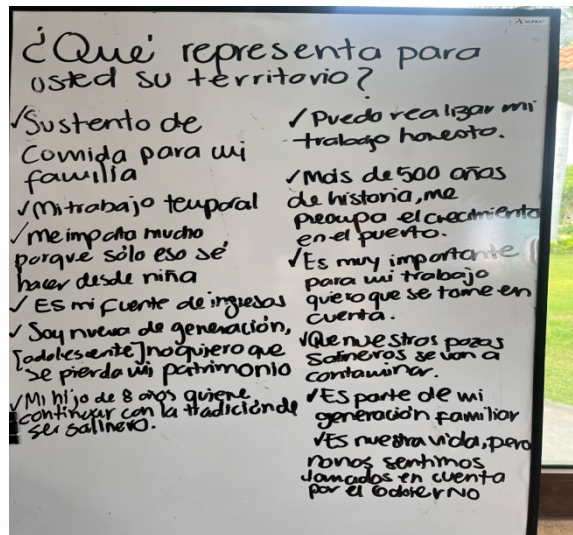 ¿Qué representa para
usted su territorio?
✓Sustento de
Comida para mi
familia
✓Mi trabajo temporal
✓me impacta mucho
porque sólo eso sé
hacer desde niña
✓ Es mi fuente de ingresos
✓ Soy nueva de generación,
[adolescente] no quiero que
se pierda mi patrimonio
✓Mi hijo de 8 años quiere
continuar con la tradición de
ser salinero.
✓Puedo realizar mi
trabajo honesto.
✓Más de 500 años
de historia, me
preocupa el crecimiento
en el puerto.
✓Es muy importante
para mi trabajo
quiero que se tome en
cuenta.
✓Que nuestros pozas
salineros se van a
contaminar.
✓Es parte de mi
generación familiar
✓Es nuestra vida, pero
no nos sentimos
tomados en cuenta
por el Gobierno